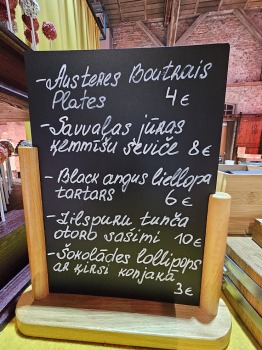 - Austeres Boutrais
Plates 4 €
- Savvaļas jūras
ķemmīšu seviče 8 €
- Black angus liellopa
tartars 6 €
- Zilspuru tunča
otoro sašimi 10 €
- Šokolādes lollipops
ar ķirsi konjakā
3 €